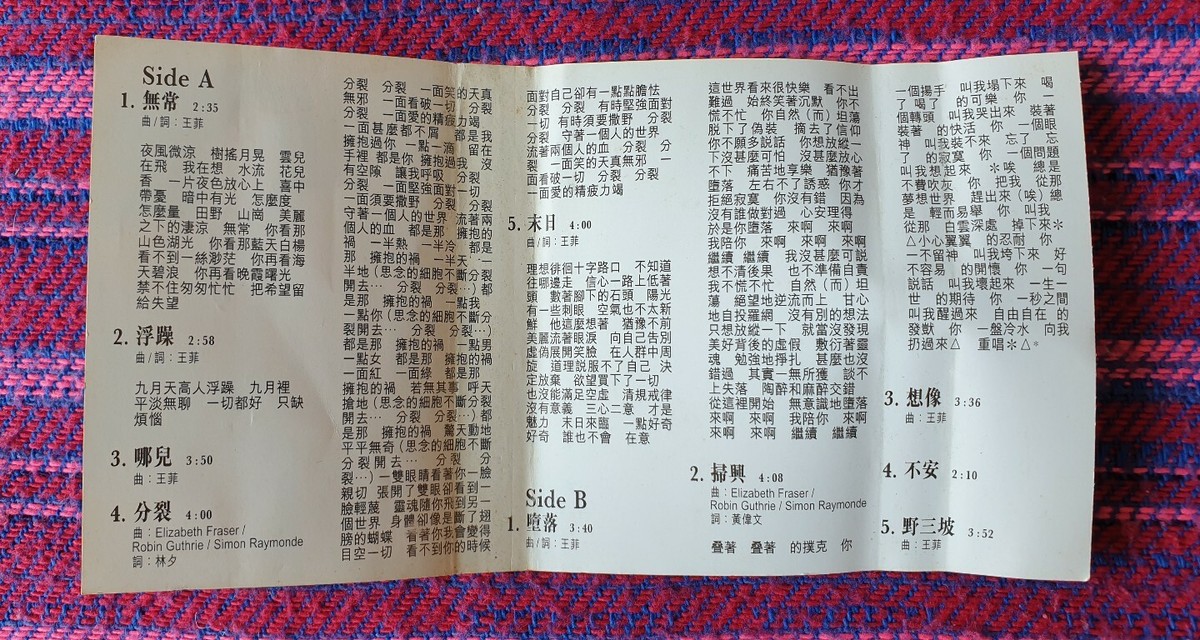 Side A
1. 無常 2:35
曲/詞：王菲
夜風微涼　樹搖月晃　雲兒
在飛　我在想　水流　花兒
香　一片夜色放心上　喜中
帶憂　暗中有光　怎麼度
怎麼量　田野　山崗　美麗
之下的淒涼　無常　你看那
山色湖光　你看那藍天白楊
看不到一絲渺茫　你再看海
天碧浪　你再看晚霞曙光
禁不住匆匆忙忙　把希望留
給失望
2. 浮躁 2:58
曲/詞：王菲
九月天高人浮躁　九月裡
平淡無聊　一切都好　只缺
煩惱
3. 哪兒 3:50
曲：王菲
4. 分裂 4:00
曲：Elizabeth Fraser /
Robin Guthrie / Simon Raymonde
詞：林夕
分裂　分裂　一面笑的天真
無邪　一面看破一切　分裂
分裂　一面愛的精疲力竭
一面甚麼都不屑　都是我
擁抱過你　一點一滴　留在
手裡　都是你　擁抱過我　沒
有空隙　讓我呼吸　分裂
分裂　一面堅強面對一切
一面須要撒野　分裂　分裂
守著一個人的世界　流著兩
個人的血　都是那　擁抱的
禍　一半熱　一半冷　都是
那　擁抱的禍　一半天　一
半地(思念的細胞不斷分裂
開去…　分裂　分裂…)都
是那　擁抱的禍　一點我
一點你(思念的細胞不斷分
裂開去…　分裂　分裂…)
都是那　擁抱的禍　一點男
一點女　都是那　擁抱的禍
一面紅　一面綠　都是那
擁抱的禍　若無其事　呼天
搶地(思念的細胞不斷分裂
開去…　分裂　分裂…)都
是那　擁抱的禍　驚天動地
平平無奇(思念的細胞不斷
分裂開去…　分裂　分
裂…)一雙眼睛看著你一臉
親切　張開了雙眼卻看到一
臉輕蔑　靈魂隨你飛到另一
個世界　身體卻像是斷了翅
膀的蝴蝶　看著你我會變得
目空一切　看不到你的時候
面對自己卻有一點點膽怯
分裂　分裂　有時堅強面對
一切　有時須要撒野　分裂
分裂　守著一個人的世界
流著兩個人的血　分裂　分
裂　一面笑的天真無邪　一
面看破一切　分裂　分裂
一面愛的精疲力竭
5. 末日 4:00
曲/詞：王菲
理想徘徊十字路口　不知道
往哪邊走　信心一路上低著
頭　數著腳下的石頭　陽光
有一些刺眼　空氣也不太新
鮮　他這麼想著　猶豫不前
美麗流著眼淚　向自己告別
虛偽展開笑臉　在人群中周
旋　道理說服不了自己　決
定放棄　欲望買下了一切
也沒能滿足空虛　清規戒律
沒有意義　三心二意　才是
魅力　末日來臨　一點好奇
好奇　誰也不會　在意
Side B
1. 墮落 3:40
曲/詞：王菲
這世界看來很快樂　看不出
難過　始終笑著沉默　你不
慌不忙　你自然(而)坦蕩
脫下了偽裝　摘去了信仰
你不願多說話　你想放縱一
下沒甚麼可怕　沒甚麼放心
不下　痛苦地享樂　猶豫著
墮落　左右不了誘惑　你才
拒絕寂寞　你沒有錯　因為
沒有誰做對過　心安理得
於是你墮落　來啊　來啊
我陪你　來啊　來啊　來啊
繼續　繼續　我沒甚麼可說
想不清後果　也不準備自責
我不慌不忙　自然(而)坦
蕩　絕望地逆流而上　甘心
地自投羅網　沒有別的想法
只想放縱一下　就當沒發現
美好背後的虛假　敷衍著靈
魂　勉強地掙扎　甚麼也沒
錯過　其實一無所獲　談不
上失落　陶醉和麻醉交錯
從這裡開始　無意識地墮落
來啊　來啊　我陪你　來啊
來啊　來啊　繼續　繼續
2. 掃興 4:08
曲：Elizabeth Fraser /
Robin Guthrie / Simon Raymonde
詞：黃偉文
疊著　疊著　的撲克　你
一個揚手　叫我塌下來　喝
了　喝了　的可樂　你　一
個轉頭　叫我哭出來　裝著
裝著　的快活　你　一個眼
神　叫我裝不來　忘了　忘
了　的寂寞　你　一個問題
叫我想起來　＊唉　總是
不費吹灰　你　把我　從那
夢想世界　趕出來(唉)總
是　輕而易舉　你　叫我
從那　白雲深處　掉下來＊
△小心翼翼　的忍耐　你
一不留神　叫我垮下來　好
不容易　的開懷　你　一句
說話　叫我壞起來　一生一
世　的期待　你　一秒之間
叫我醒過來　自由自在　的
發獃　你　一盤冷水　向我
扔過來△　重唱＊△＊
3. 想像 3:36
曲：王菲
4. 不安 2:10
5. 野三坡 3:52
曲：王菲